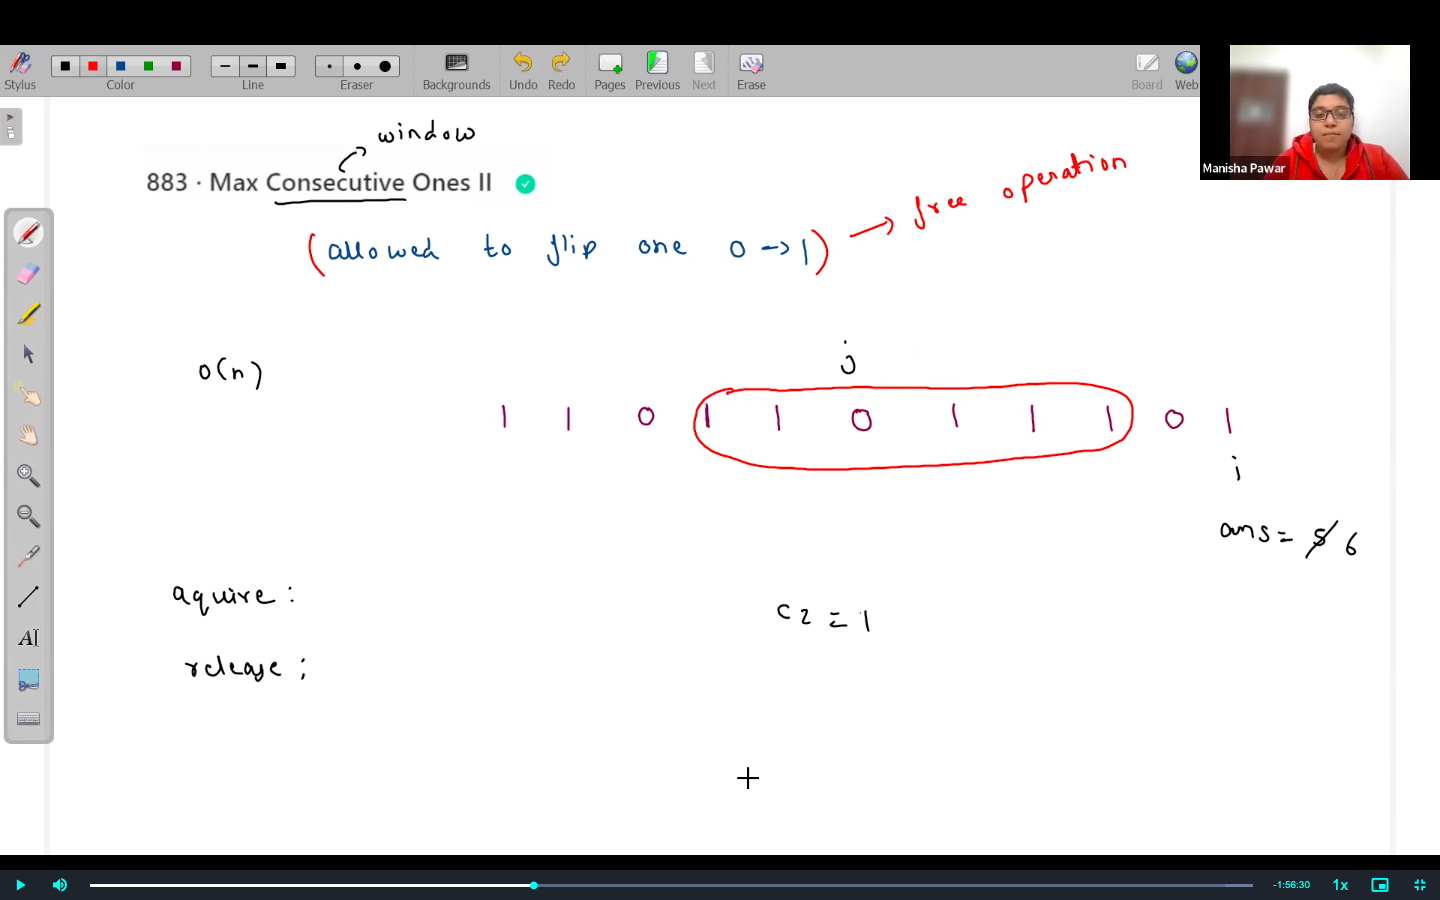 Stylus
Color
Line
Eraser
Backgrounds
Undo
Redo
Pages
Previous
Next
Erase
Board
Web
Manisha Pawar
window
883 · Max Consecutive Ones II
(allowed to flip one 0 -> 1) → free operation
j
O(n)
1 1 0 1 1 0 1 1 1 0 1
i
ans = 5 6
aquire :
c2 = 1
release ;
AI
-1:56:30
1x